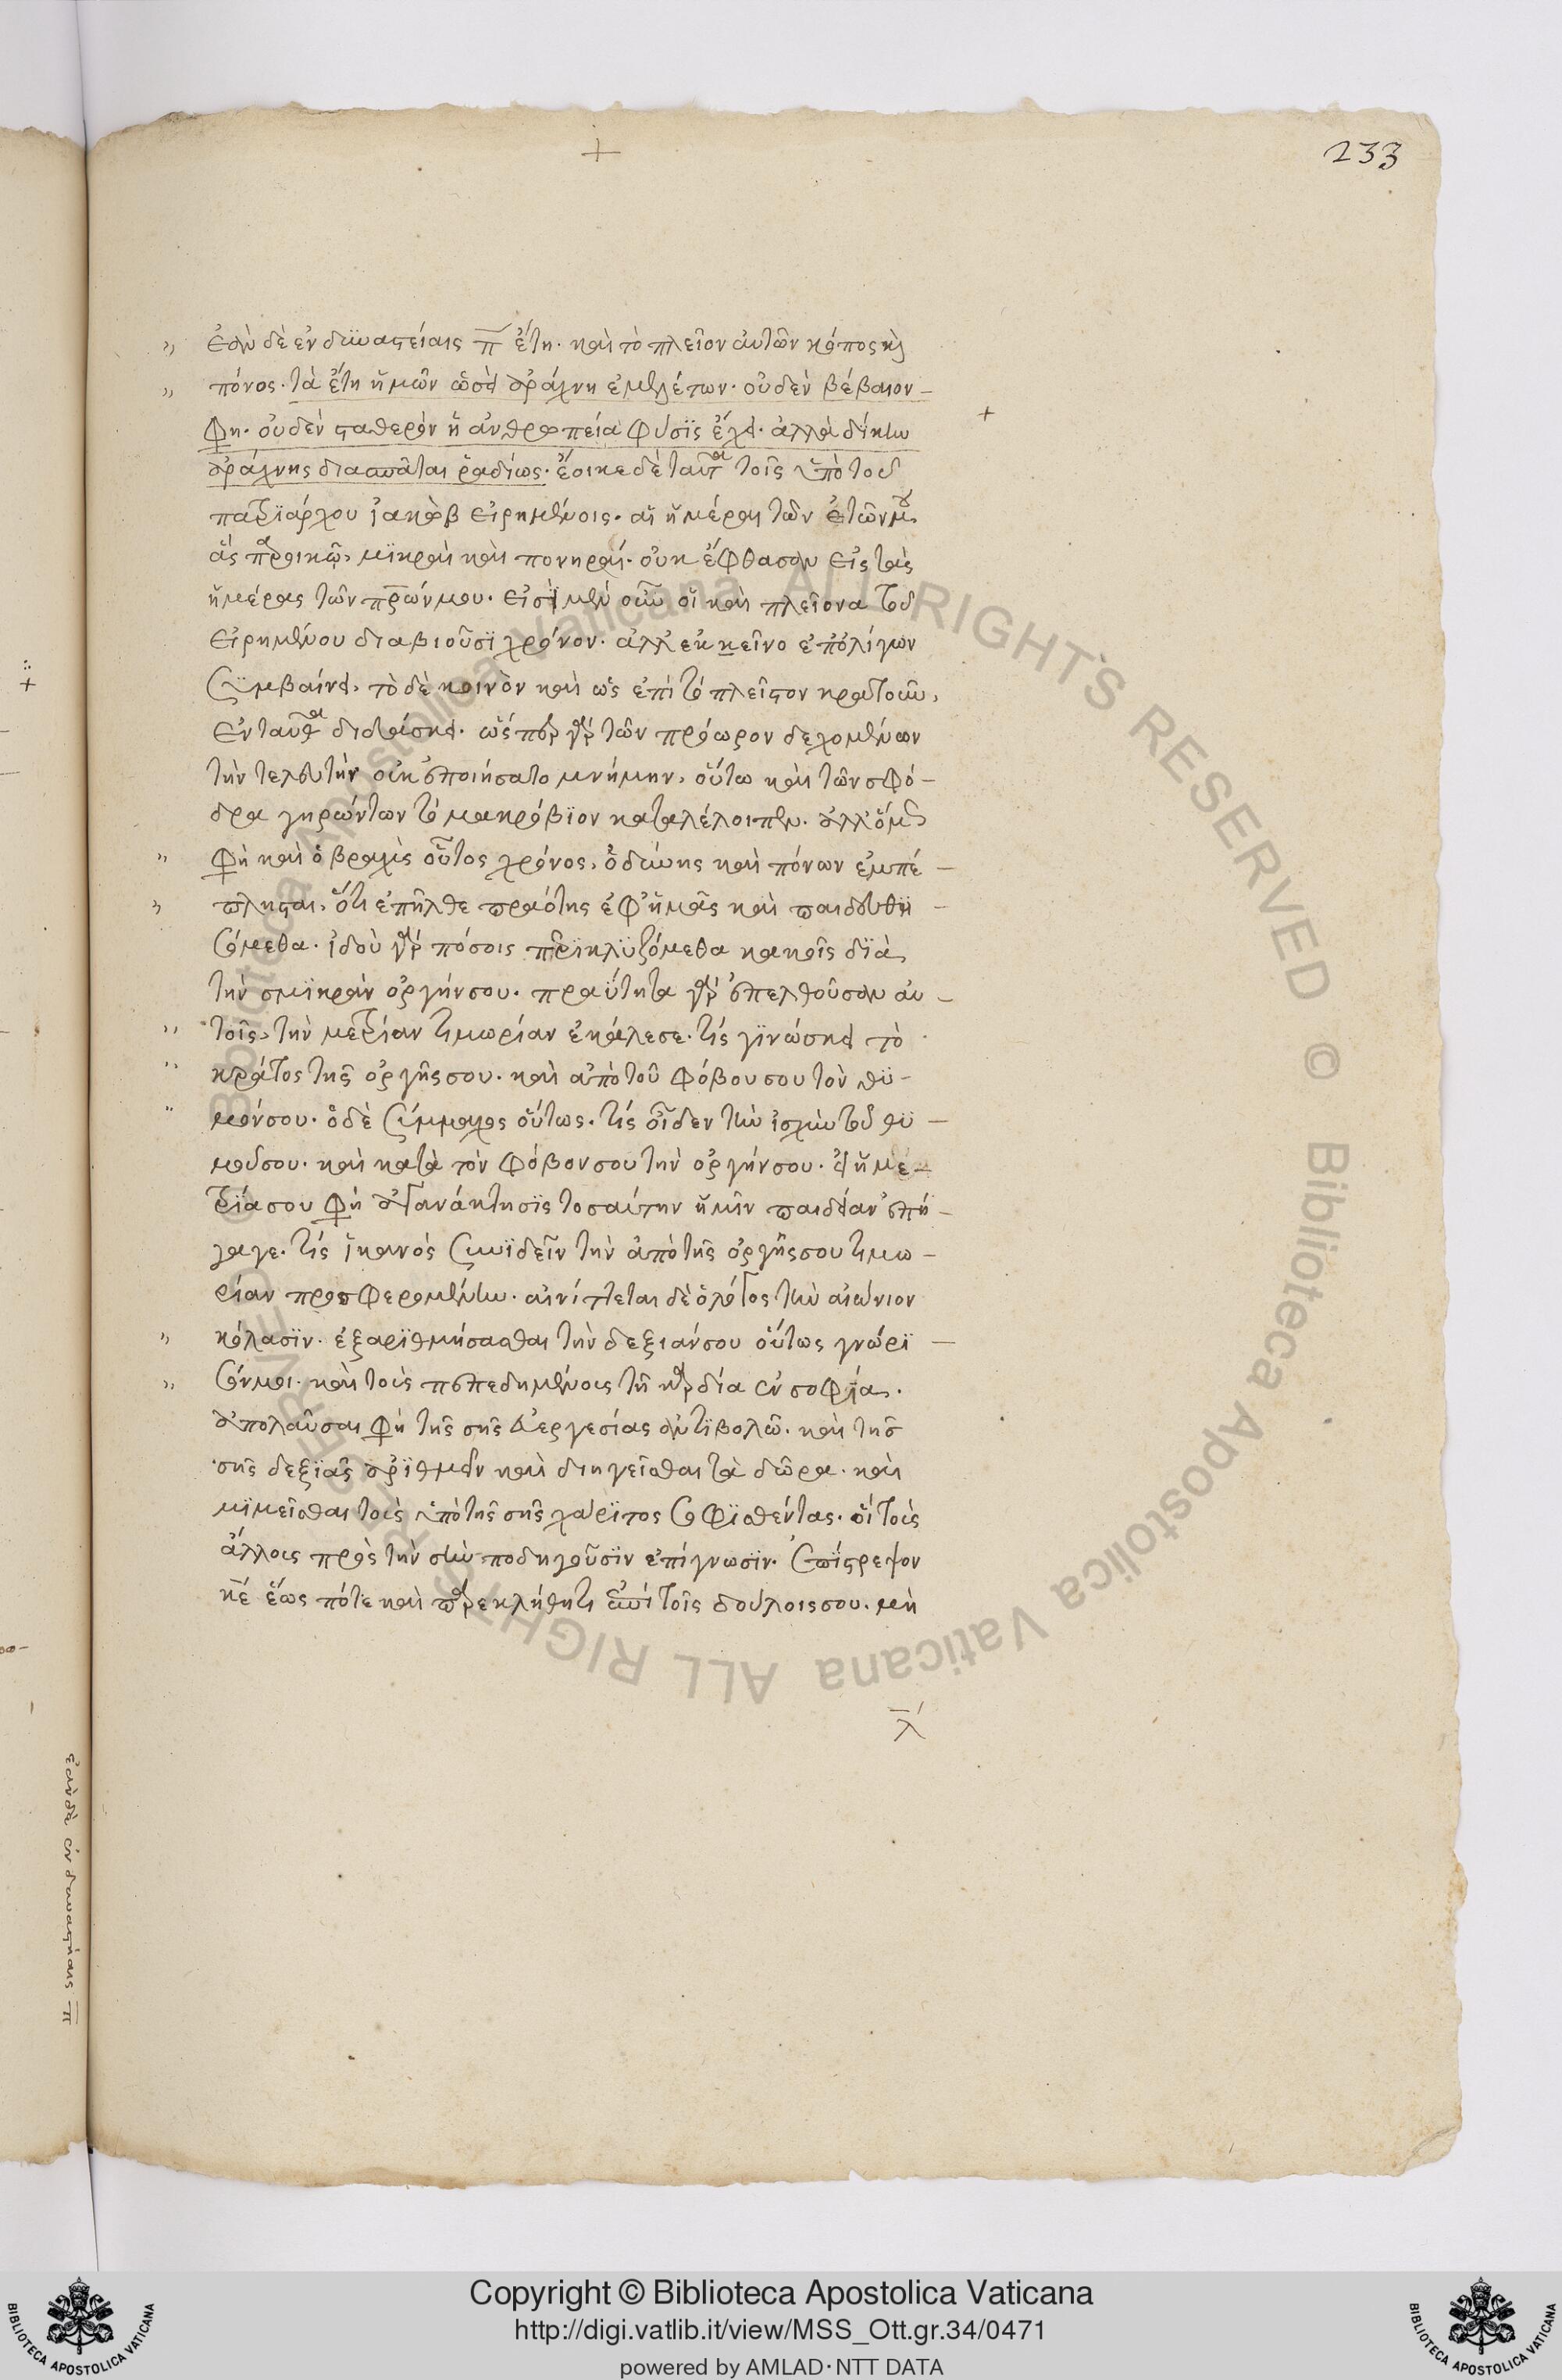 233
ἐὰν δὲ ἐν δυναστείαις π̅ ἔτη· καὶ τὸ πλεῖον αὐτῶν κόπος κ̀
πόνος· τὰ ἔτη ἡμῶν ὡσεὶ ἀράχνη ἐμελέτων· οὐδὲν βέβαιον
φη· οὐδὲν σταθερὸν ἡ ἀνθρωπεία φύσϊς ἔχει· ἀλλὰ δίκην
ἀράχνης διασπᾶται ῥαδίως· ἔοικε δὲ ταῦτα τοῖς ὑπὸ τοῦ
πατρϊάρχου ἰακὼβ εἰρημένοις· αἱ ἡμέραι τῶν ἐτῶν μου
ἃς παροικῶ, μϊκραὶ καὶ πονηραί· οὐκ ἔφθασαν εἰς τὰς
ἡμέρας τῶν πρ̅ων μου· εἰσὶ μὲν οὖν οἳ καὶ πλεῖονα τοῦ
εἰρημένου διαβιοῦσϊ χρόνον· ἀλλ' ἐκκεῖνο ἐπ' ὀλίγων
συμβαίνει, τὸ δὲ κοινὸν καὶ ὡς ἐπὶ τὸ πλεῖστον κρατοῦν,
ἐνταῦθα διδάσκει· ὥσπερ γὰρ τῶν πρόωρον δεχομένων
τὴν τελευτὴν οὐκ ἐποιήσατο μνήμην, οὕτω καὶ τῶν σφό-
δρα γηρώντων τὸ μακρόβϊον καταλέλοιπεν· ἀλλ' ὅμως
φὴ καὶ ὁ βραχὺς οὗτος χρόνος, ὀδύνης καὶ πόνων ἐμπέ-
πλησται, ὅτι ἐπῆλθε πραότης ἐφ' ἡμᾶς καὶ παιδευθη-
σόμεθα· ἰδοὺ γὰρ πόσοις περϊκλϋζόμεθα κακοῖς δϊὰ
τὴν σμϊκρὰν ὀργήν σου· πραΰτητα γὰρ ἐπελθοῦσαν αὐ-
τοῖς, τὴν μετρίαν τιμωρίαν ἐκάλεσε· τίς γϊνώσκει τὸ
κράτος τῆς ὀργῆς σου· καὶ ἀπὸ τοῦ φόβου σου τὸν θϋ-
μόν σου· ὁ δὲ σύμμαχος οὕτως· τίς οἶδεν τὴν ἰσχὺν τοῦ θϋ-
μοῦ σου· καὶ κατὰ τὸν φόβον σου τὴν ὀργήν σου· εἰ ἡ με-
τρϊά σου φὴ ἀγανάκτησϊς τοσαύτην ἡμῖν παιδείαν ἐπή-
γαγε· τίς ἱκανὸς συνϊδεῖν τὴν ἀπὸ τῆς ὀργῆς σου τιμω-
ρίαν προσφερομένην· αἰνίττεται δὲ ὁ λόγος τὴν αἰώνιον
κόλασϊν· ἐξαρϊθμήσασθαι τὴν δεξιάν σου οὕτως γνώρϊ-
σόν μοι· καὶ τοὺς πεπεδημένοις τῆ καρδία ἐν σοφία·
ἀπολαῦσαι φὴ τῆς σῆς εὐεργεσίας ἀντϊβολῶ· καὶ τῆς
σῆς δεξϊᾶς ἀρϊθμεῖν καὶ διηγεῖσθαι τὰ δῶρα· καὶ
μϊμεῖσθαι τοὺς ὑπὸ τῆς σῆς χάρϊτος σοφϊσθέντας· οἳ τοὺς
ἄλλους πρὸς τὴν σὴν ποδηγοῦσϊν ἐπίγνωσϊν· ἐπϊστρεψον
κ̅ε ἕως πότε καὶ παρακλήθητι ἐπὶ τοῖς δούλοις σου· μὴ
λ̅
ἐὰν δὲ ἐν δυναστείαις π̅
Copyright © Biblioteca Apostolica Vaticana
http://digi.vatlib.it/view/MSS_Ott.gr.34/0471
powered by AMLAD·NTT DATA
BIBLIOTECA APOSTOLICA VATICANA
BIBLIOTECA APOSTOLICA VATICANA